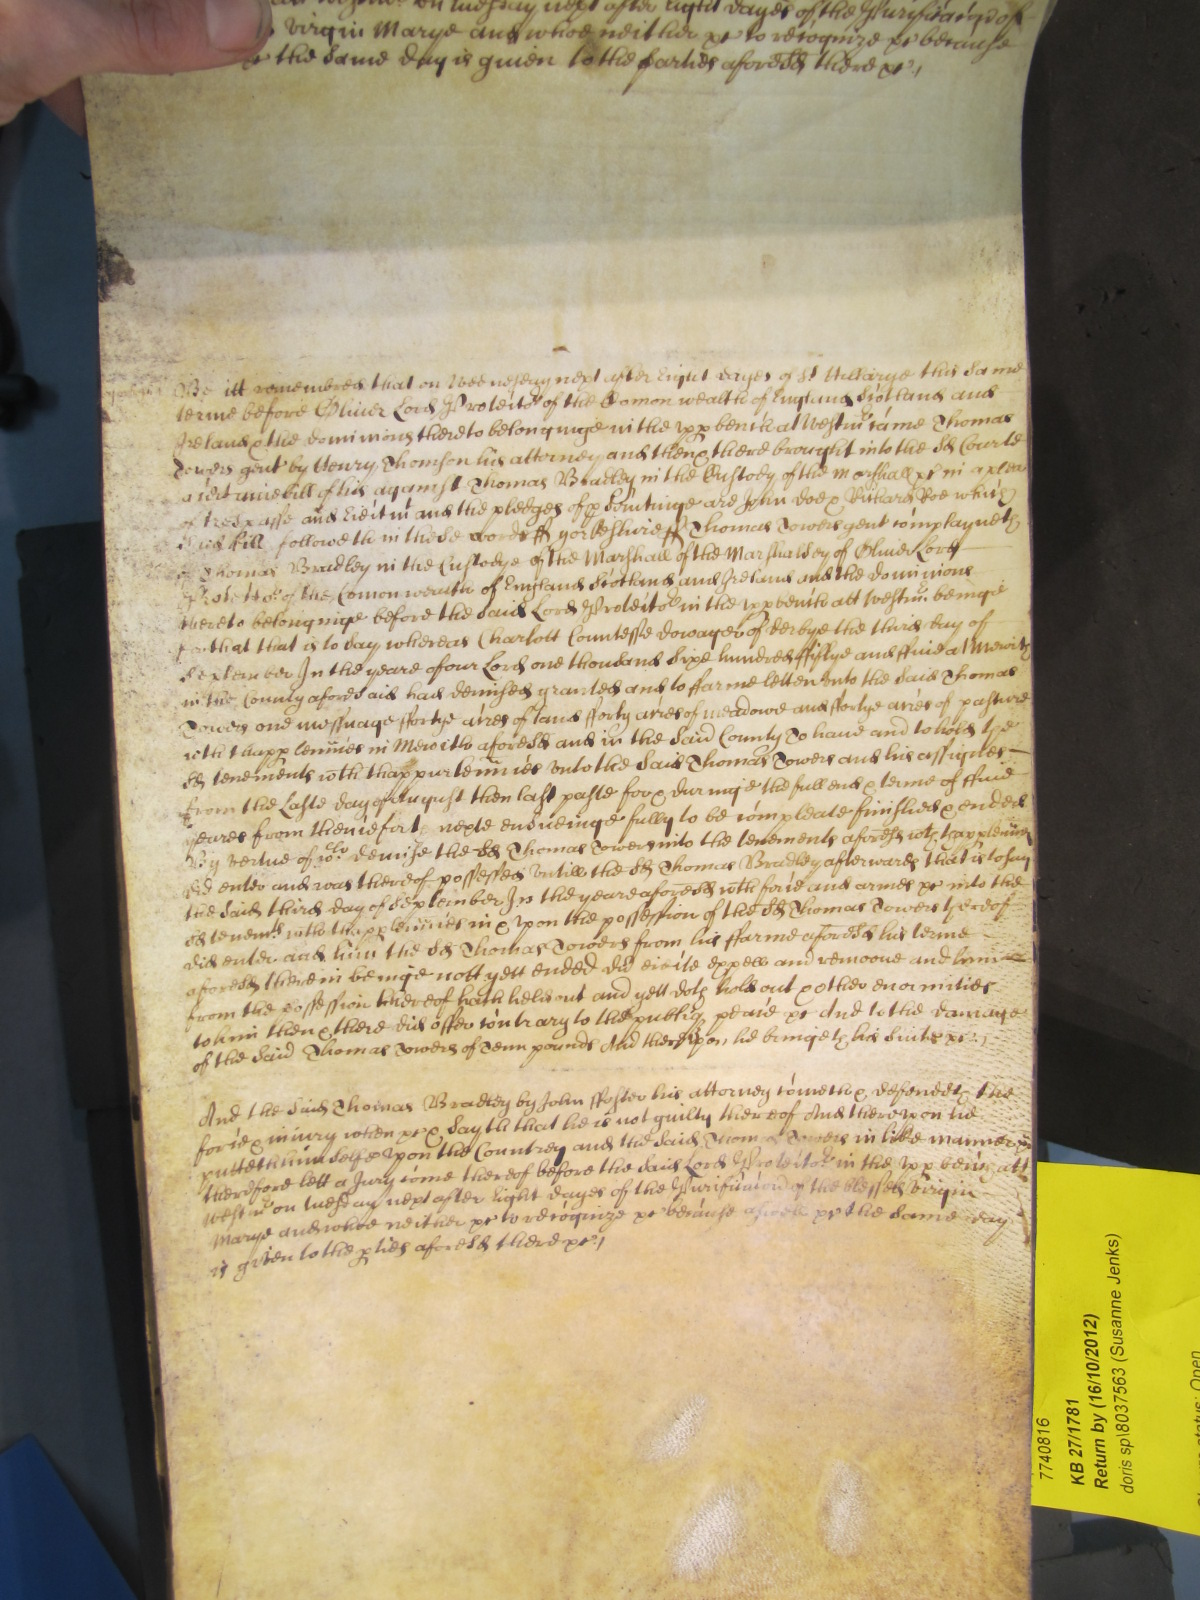 on Tuesday next after Eight dayes of the Purificacion of
Virgin Marye and whoe neither &c to recognize &c because
the same day is given to the parties aforesd there &c
Be itt remembred that on Wednesday next after Eight dayes of St Hillarye this same
terme before Oliver Lord Protector of the Comon wealth of England Scotland and
Ireland & the dominions thereto belonginge in the upp bench at Westmr came Thomas
Towers gent by Henry Thomson his attorney and then & there brought into the sd Courte
a certaine bill of his against Thomas Bradley in the Custody of the Marshall &c in a plea
of trespasse and Eiectmt and the pledges of psecutinge are John doe & Richard Roe which
said bill followeth in these words ss yorkeshire ss Thomas Towers gent complayneth
of Thomas Bradley in the Custodye of the Marshall of the Marshalsey of Oliver Lord
Protector of the Comonwealth of England Scotland and Ireland and the dominions
thereto belonginge before the said Lord Protector in the upp bench att Westmr beinge
for that that is to say whereas Charlott Countesse dowager of derbye the third day of
September In the yeare of our Lord one thousand sixe hundred ffiftye and ffive at Mewith
in the County aforesaid had demised granted and to ffarme letten unto the said Thomas
Towers one messuage ffortye acres of land fforty acres of meadowe and ffortye acres of pasture
with thapptennces in Mewith aforesd and in the said County To have and to hold the
sd tenements with thappurtennces unto the said Thomas Towers and his assignes
From the Laste day of August then last paste for & duringe the full end & terme of ffive
yeares from thenceforth nexte ensueinge fully to be compleate finished & ended
By vertue of wch demise the sd Thomas Towers into the tenements aforesd with thapptennces
did enter and was thereof possessed Untill the sd Thomas Bradley afterwards that is to say
the said third day of September In the yeare aforesd with force and armes &c into the
sd tenemts with thapptennces in & upon the possession of the sd Thomas Towers thereof
did enter and him the sd Thomas Towers from his ffarme aforesd his terme
aforesd therein beinge nott yett ended did eiecte expell and remoove and him
from the possession thereof hath held out and yett doth hold out & other enormities
to him then & there did offer contrary to the publiq peace &c And to the damage
of the said Thomas Towers of Tenn pounds And thereupon he bringeth his suite &c
And the said Thomas Bradley by John ffoster his attorney cometh & defendeth the
force & iniury when &c & sayth that he is not guilty thereof And thereupon he
putteth himselfe upon the Countrey and the said Thomas Towers in like manner
therefore lett a Jury come thereof before the said Lord Protector in the upp bench att
Westmr on tuesday next after Eight dayes of the Purificacion of the blessed virgin
Marye and whoe neither &c to recognize &c because aswell &c the same day
is given to the pties aforesd there &c
7740816
KB 27/1781
Return by (16/10/2012)
doris sp\8037563 (Susanne Jenks)
status: Open